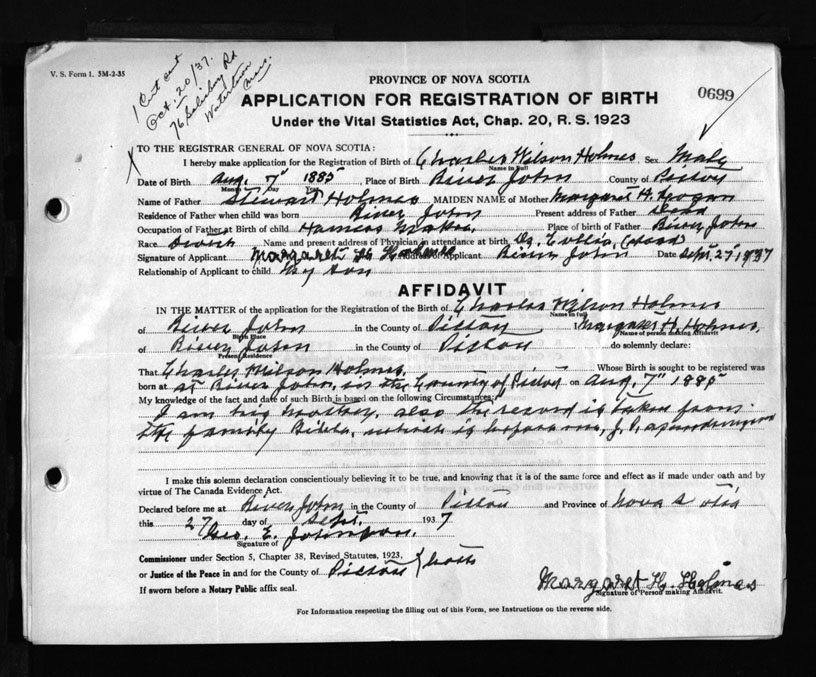 V. S. Form 1. 5M-2-35
1 Cert out
Oct. 20/37.
76 Salisbury Rd
Watertown
Mass.
PROVINCE OF NOVA SCOTIA
0699
APPLICATION FOR REGISTRATION OF BIRTH
Under the Vital Statistics Act, Chap. 20, R. S. 1923
TO THE REGISTRAR GENERAL OF NOVA SCOTIA:
I hereby make application for the Registration of Birth of Charles Wilson Holmes Sex Male
Name in Full
Date of Birth Aug. 7" 1885, Place of Birth River John County of Pictou
Month Day Year
Name of Father Stewart Holmes MAIDEN NAME of Mother Margaret H.
Residence of Father when child was born River John Present address of Father Dead
Occupation of Father at Birth of child Harness Maker Place of birth of Father River John
Race Name and present address of Physician in attendance at birth Dr. (dead)
Signature of Applicant Margaret H. Holmes Address of Applicant River John Date Sept. 27 1937
Relationship of Applicant to child My son
AFFIDAVIT
IN THE MATTER of the application for the Registration of the Birth of Charles Wilson Holmes
Name in full
of River John in the County of Pictou I Margaret H. Holmes,
Birth Place Name of person making Affidavit
of River John in the County of Pictou do solemnly declare:
Present Residence
That Charles Wilson Holmes, Whose Birth is sought to be registered was
born at at River John, in the County of Pictou on Aug. 7" 1885
My knowledge of the fact and date of such Birth is based on the following Circumstances:
I am his mother, also the record is taken from
the family Bible, which is before me, J. P.
I make this solemn declaration conscientiously believing it to be true, and knowing that it is of the same force and effect as if made under oath and by
virtue of The Canada Evidence Act.
Declared before me at River John in the County of Pictou and Province of Nova Scotia
this 27 day of Sept. 1937
Geo. E. Johnson.
Signature of
Commissioner under Section 5, Chapter 38, Revised Statutes, 1923,
or Justice of the Peace in and for the County of Pictou
If sworn before a Notary Public affix seal.
Margaret H. Holmes
Signature of Person making Affidavit.
For Information respecting the filling out of this Form, see Instructions on the reverse side.